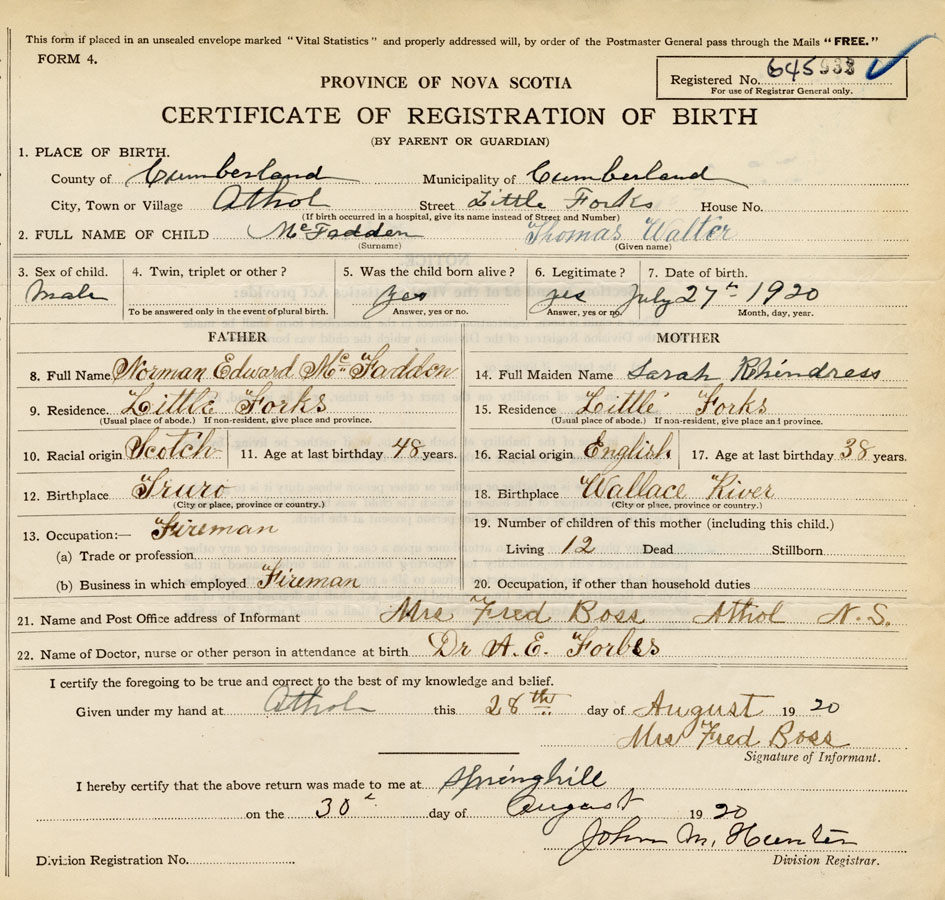 This form if placed in an unsealed envelope marked "Vital Statistics" and properly addressed will, by order of the Postmaster General pass through the Mails "FREE."
FORM 4.
PROVINCE OF NOVA SCOTIA
Registered No. 645933
For use of Registrar General only.
CERTIFICATE OF REGISTRATION OF BIRTH
(BY PARENT OR GUARDIAN)
1. PLACE OF BIRTH.
County of Cumberland Municipality of Cumberland
City, Town or Village Athol Street Little Forks House No.
(If birth occurred in a hospital, give its name instead of Street and Number)
2. FULL NAME OF CHILD McFadden Thomas Walter
(Surname) (Given name)
3. Sex of child. 4. Twin, triplet or other? 5. Was the child born alive? 6. Legitimate? 7. Date of birth.
Male yes yes July 27th 1920
To be answered only in the event of plural birth. Answer, yes or no. Answer, yes or no. Month, day, year.
FATHER MOTHER
8. Full Name Norman Edward Mc Fadden 14. Full Maiden Name Sarah Rhindress
9. Residence. Little Forks 15. Residence Little Forks
(Usual place of abode.) If non-resident, give place and province. (Usual place of abode.) If non-resident, give place and province.
10. Racial origin Scotch 11. Age at last birthday 48 years. 16. Racial origin English. 17. Age at last birthday 38 years.
12. Birthplace Truro 18. Birthplace Wallace River
(City or place, province or country.) (City or place, province or country.)
13. Occupation:— Fireman 19. Number of children of this mother (including this child.)
(a) Trade or profession Living 12 Dead Stillborn
(b) Business in which employed Fireman 20. Occupation, if other than household duties
21. Name and Post Office address of Informant Mrs Fred Boss Athol N.S.
22. Name of Doctor, nurse or other person in attendance at birth Dr A. E. Forbes
I certify the foregoing to be true and correct to the best of my knowledge and belief.
Given under my hand at Athol this 28th day of August 1920
Mrs Fred Boss
Signature of Informant.
I hereby certify that the above return was made to me at Springhill
on the 30th day of August 1920
John M. Hunter
Division Registration No. Division Registrar.